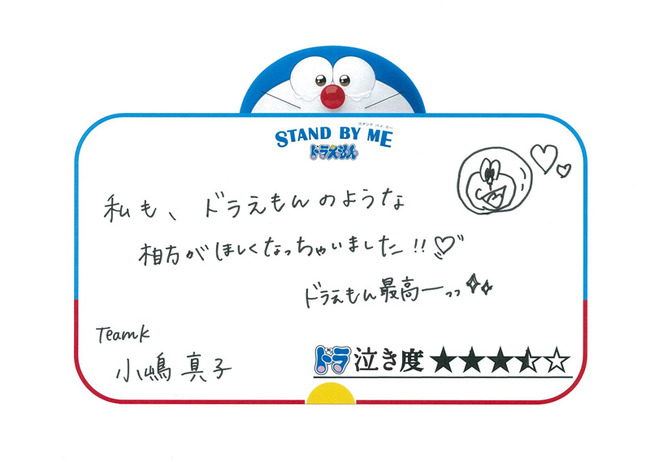 スタンド バイ ミー
STAND BY ME
ドラえもん
私も、ドラえもんのような
相方がほしくなっちゃいました!!♡
ドラえもん最高ーっっ
TeamK
小嶋真子
ドラ泣き度★★★⯪☆